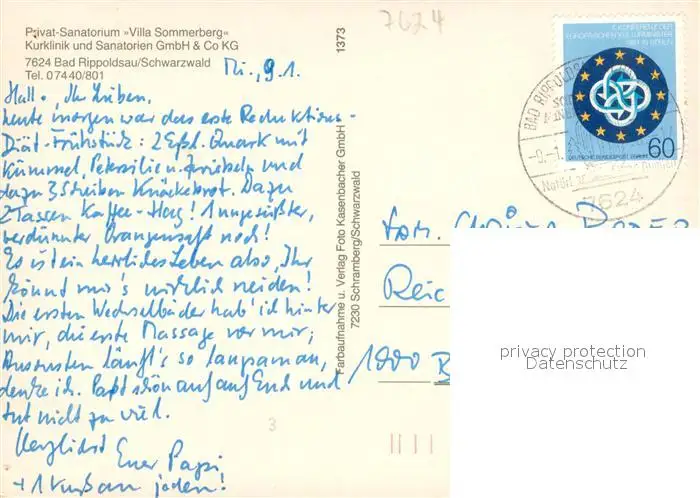 Privat-Sanatorium »Villa Sommerberg«
Kurklinik und Sanatorien GmbH & Co KG
7624 Bad Rippoldsau/Schwarzwald
Tel. 07440/801
Mi., 9.1.
Hallo, Ihr Lieben,
heute morgen war das erste Reduktions-
Diät-Frühstück: 2 Eßl. Quark mit
Kümmel, Petersilie u. Zwiebeln und
dazu 3 Scheiben Knäckebrot. Dazu
2 Tassen Kaffee-Hag! 1 ungesüßter,
verdünnter Orangensaft noch!
Es ist ein herrliches Leben also, Ihr
könnt mir's wirklich neiden!
Die ersten Wechselbäder hab' ich hinter
mir, die erste Massage vor mir;
Ausrasten läuft's so langsam an,
denke ich. Paßt schön auf auf Euch und
tut nicht zu viel.
Herzlichst
Euer Papi
+ 1 Kuß an jeden!
3
1373
Farbaufnahme u. Verlag Foto Kasenbacher GmbH
7230 Schramberg/Schwarzwald
7624
7. KONFERENZ DER
EUROPÄISCHEN VERKEHRSMINISTER
DEUTSCHE BUNDESPOST BERLIN
60
BAD RIPPOLDSAU
7624
Fam.
Reic
1000 B
privacy protection
Datenschutz